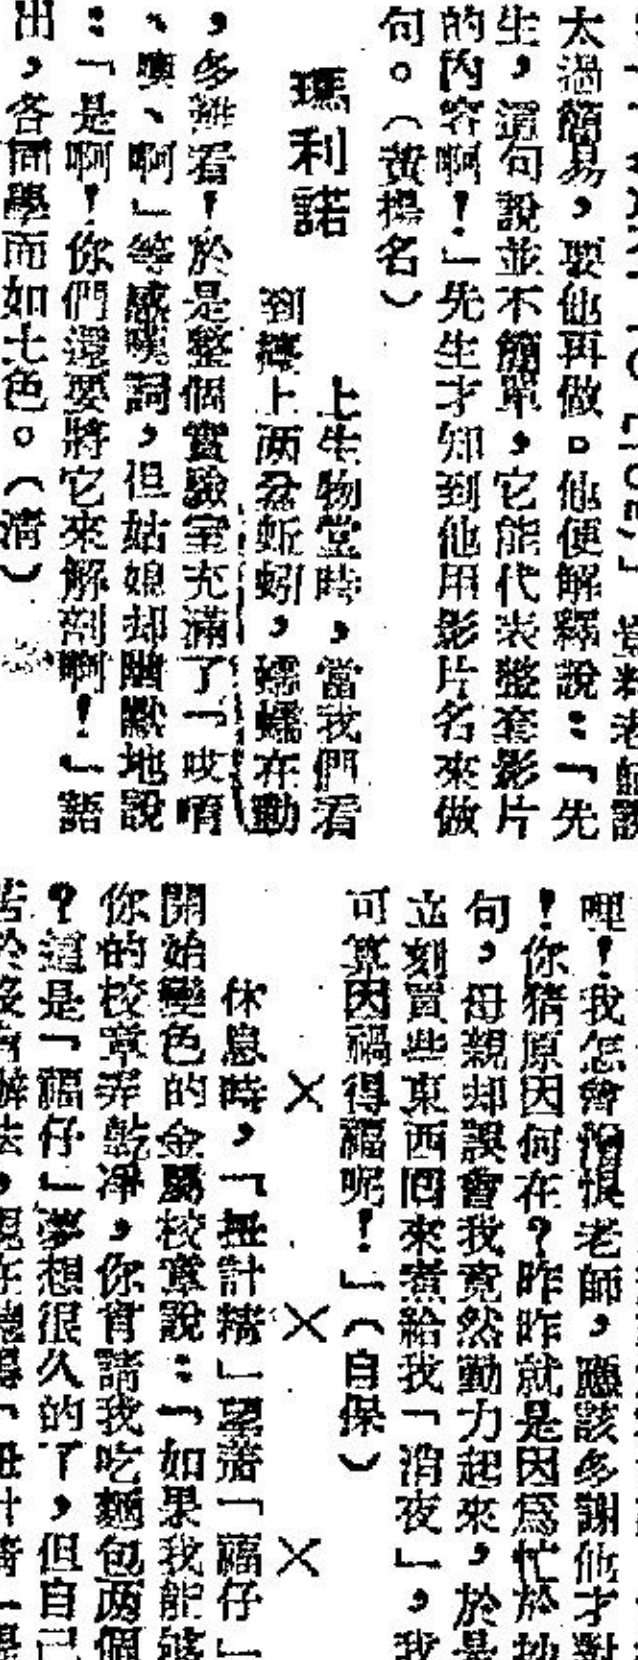 太過簡易，要他再做。他便解釋說：「先
生，這句說並不簡單，它能代表整套影片
的內容啊！」先生才知到他用影片名來做
句。（黃揚名）
瑪利諾
上生物堂時，當我們看
到檯上两盆蚯蚓，蠕蠕在動
，多難看！於是整個實驗室充滿了「哎唷
、噢、啊」等感嘆詞，但姑娘却幽默地說
：「是啊！你們還要將它來解剖啊！」語
出，各同學而如土色。（清）
哩！我怎會憎恨老師，應該多謝他才對
！你猜原因何在？昨昨就是因爲忙於抄
句，母親却誤會我竟然勤力起來，於是
立刻買些東西回來煮給我「消夜」，我
可算因禍得福呢！」（自保）
× × ×
休息時，「扭計精」望着「福仔」
開始變色的金屬校章說：「如果我能够
你的校章弄乾凈，你肯請我吃麵包两個
？這是「福仔」夢想很久的了，但自己